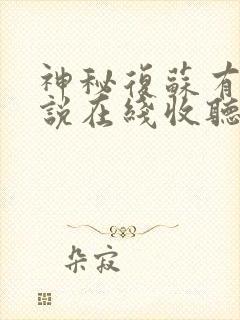 神秘復蘇有
說在綫收聽
朵寂